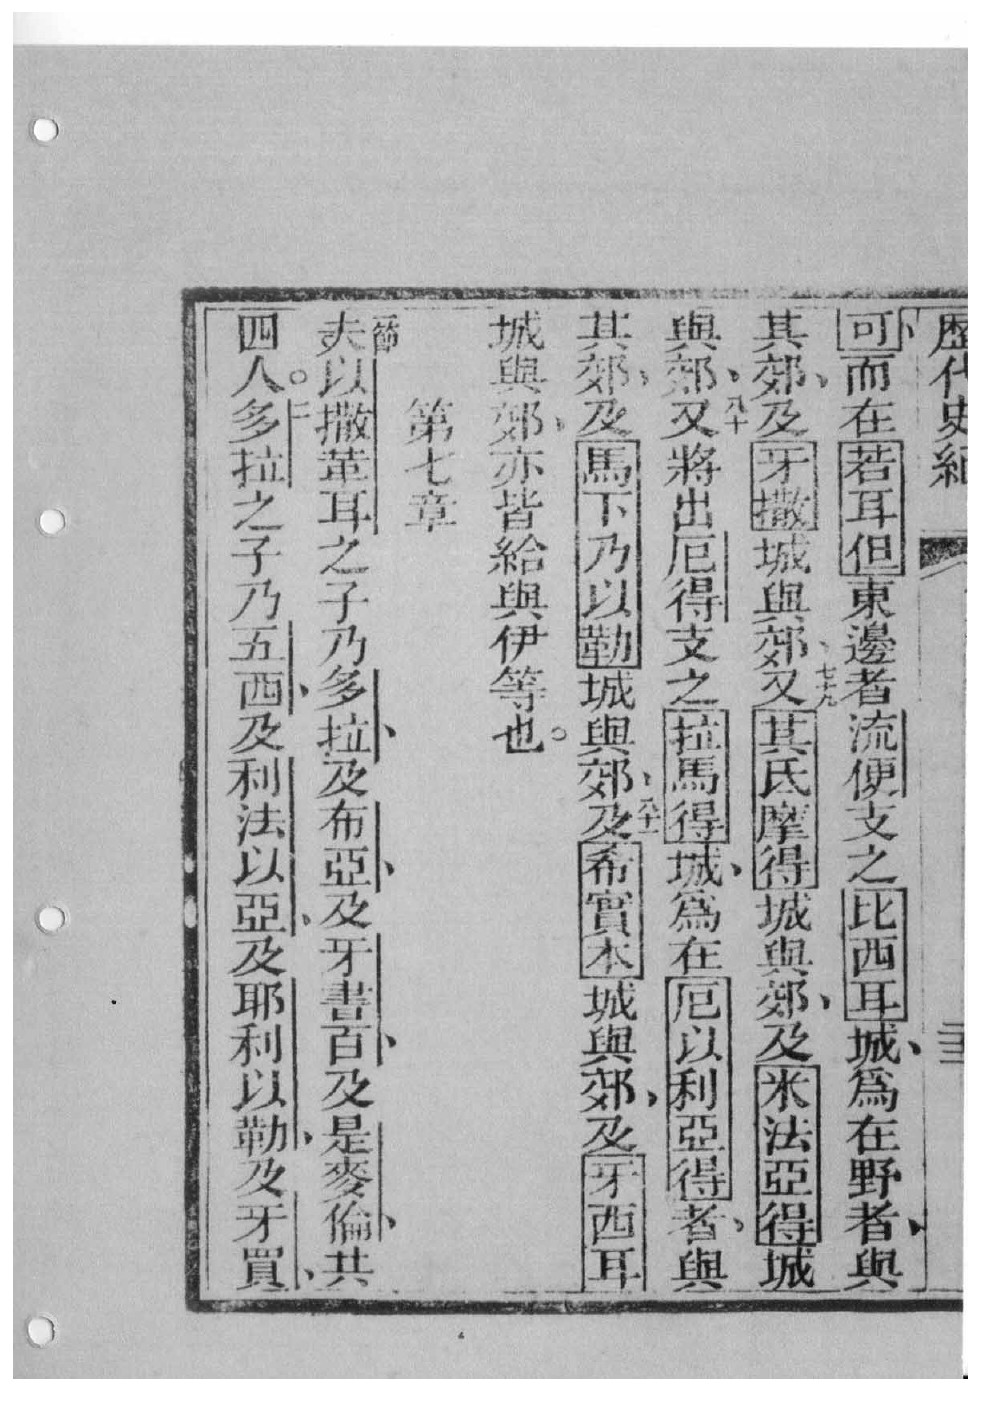 歷代史紀
可而在若耳但東邊者流便支之比西耳城、為在野者、與
其郊、及牙撒城與郊、七十九又其氏摩得城與郊、及米法亞得城
與郊、八十又將出厄得支之拉馬得城、為在厄以利亞得者、與
其郊、及馬下乃以勒城與郊、八十一及希實本城與郊、及牙西耳
城與郊、亦皆給與伊等也。
第七章
一節夫以撒革耳之子乃多拉、及布亞、及牙書百、及是麥倫、共
四人。二多拉之子乃五西、及利法以亞、及耶利以勒、及牙買、